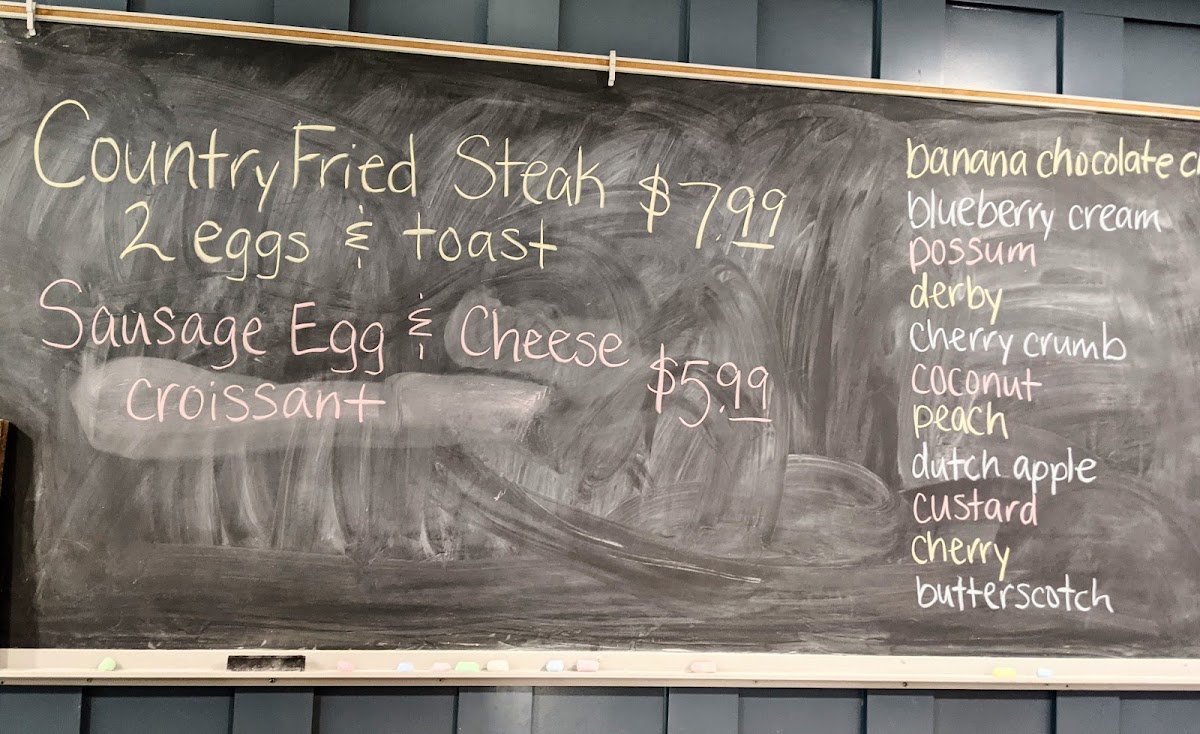 Country Fried Steak $7.99
2 eggs & toast
Sausage Egg & Cheese
croissant $5.99
banana chocolate c
blueberry cream
possum
derby
cherry crumb
coconut
peach
dutch apple
custard
cherry
butterscotch